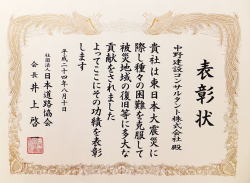 表彰状
中野建設コンサルタント株式会社 殿
貴社は東日本大震災に
際し種々の困難を克服して
被災地域の復旧等に多大な
貢献をされました
よってここにその功績を表彰
します
平成二十四年八月十日
社団法人 日本道路協会
会長 井上啓一